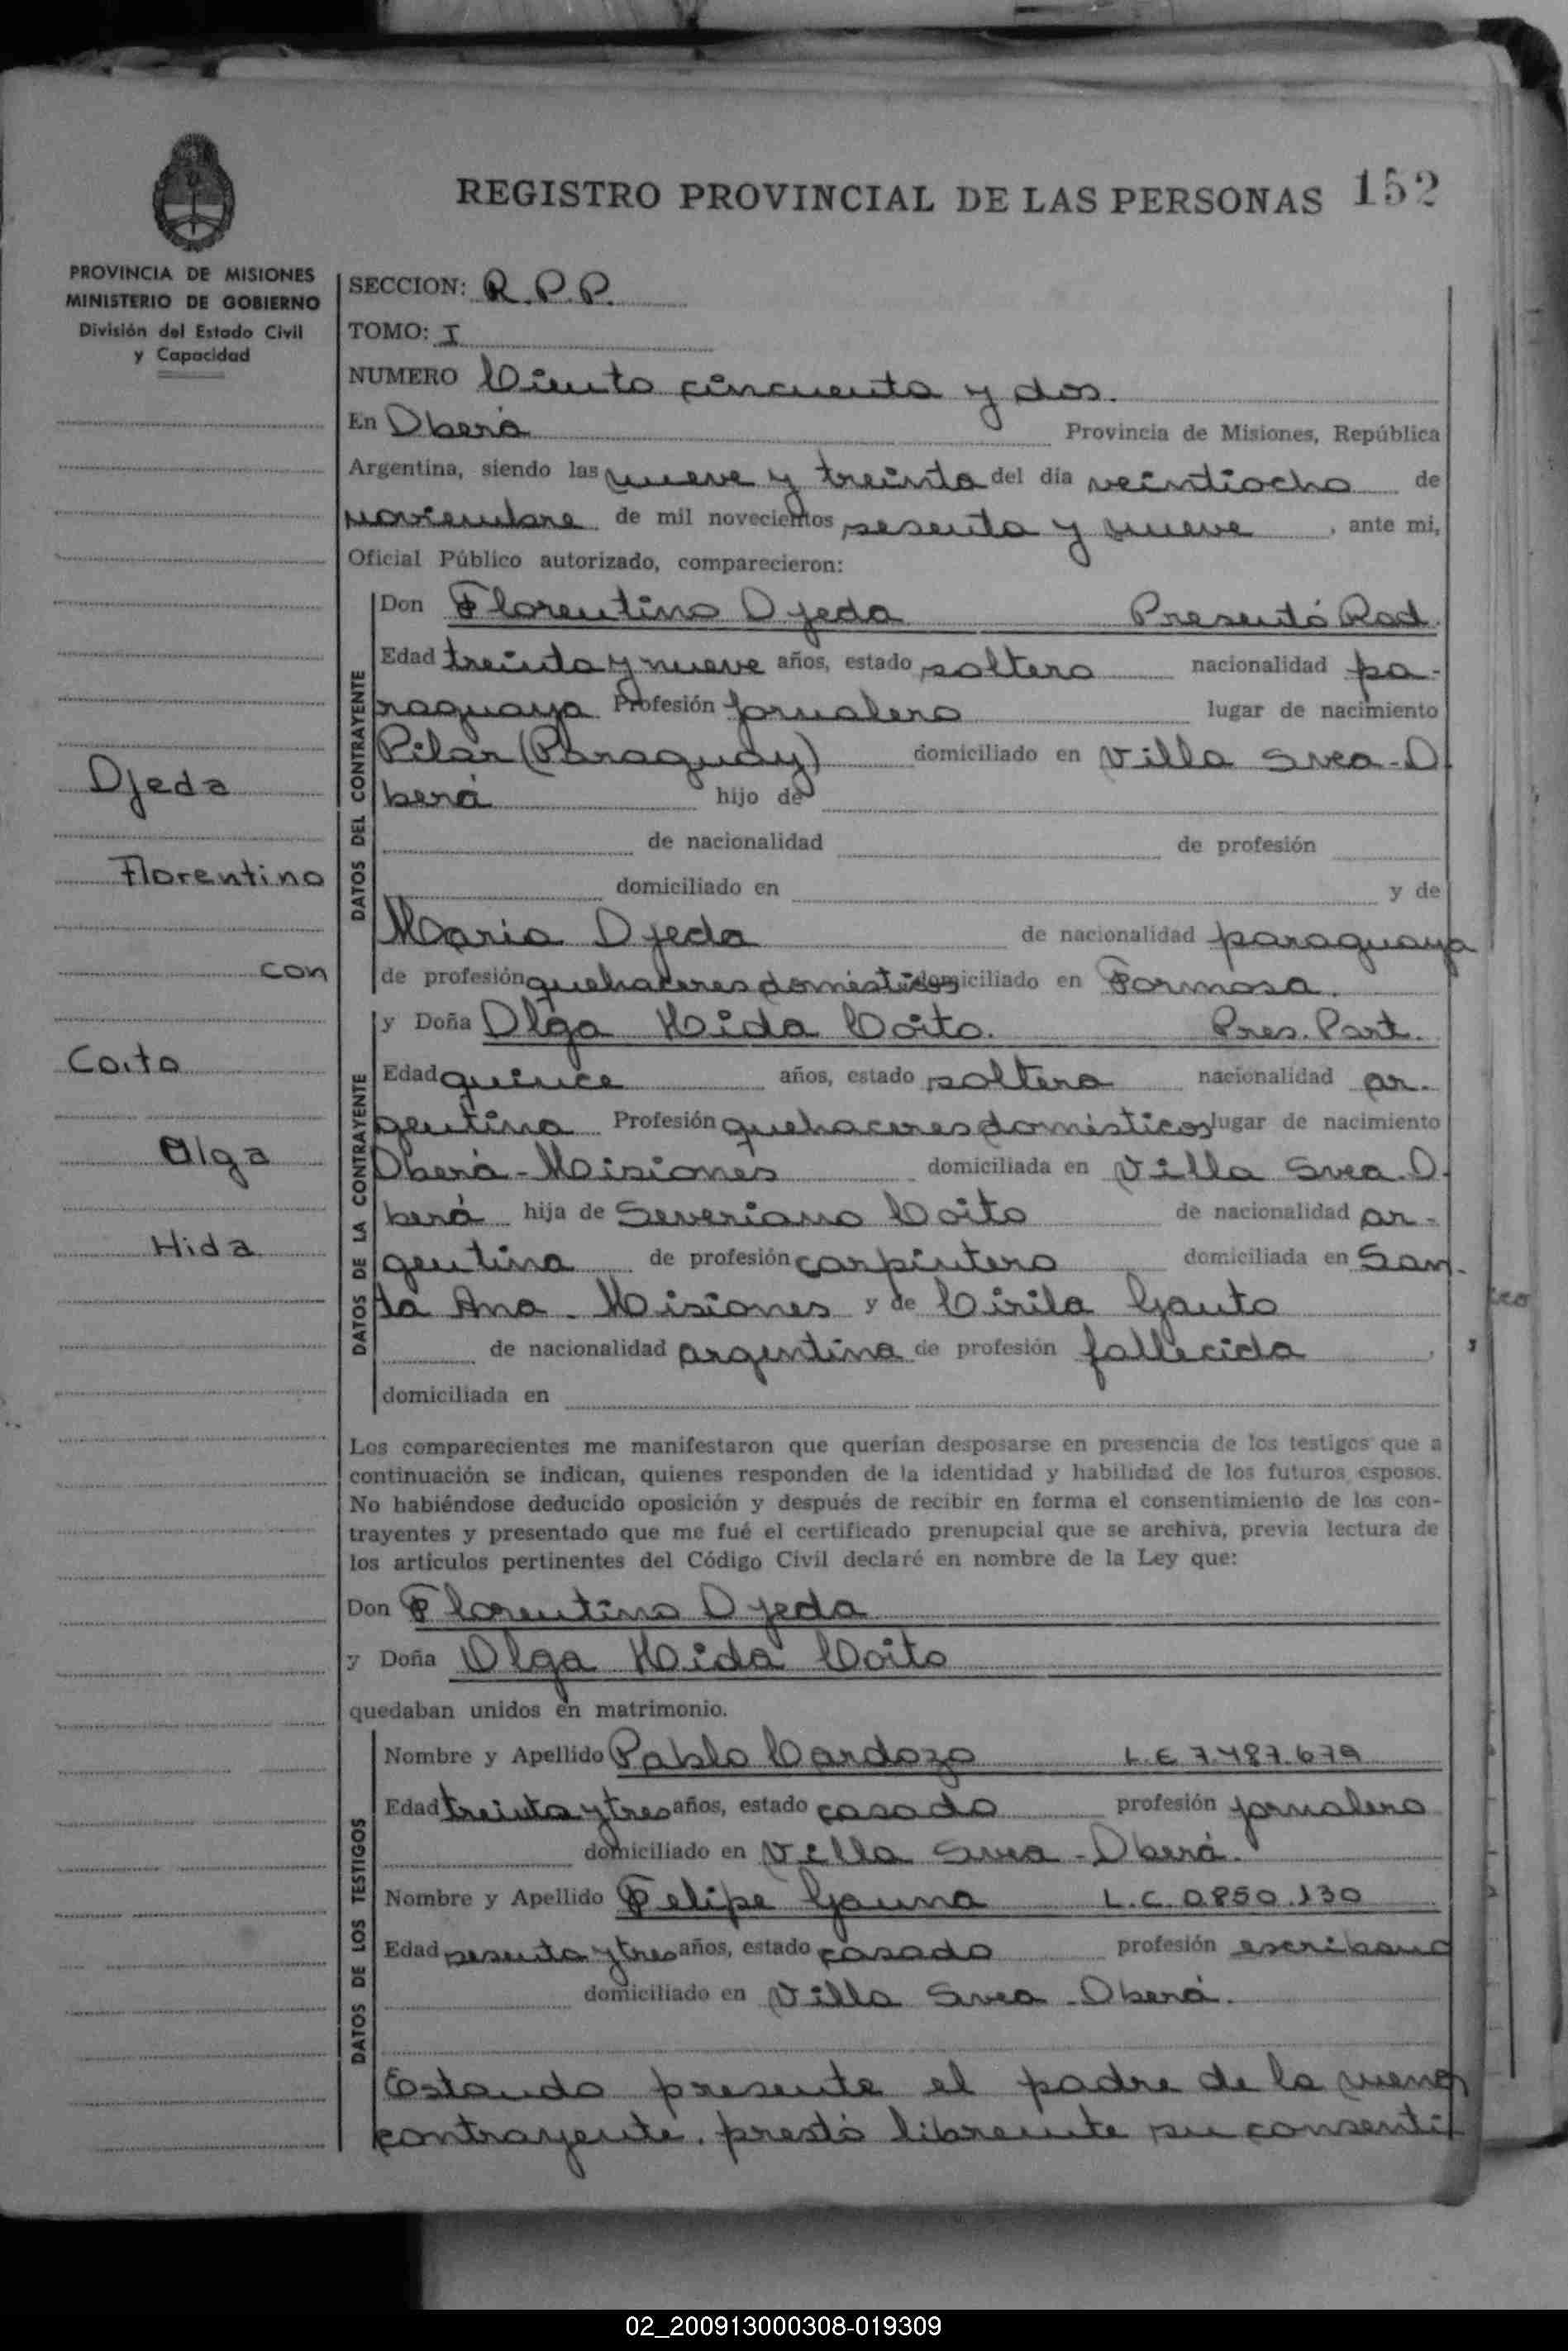 REGISTRO PROVINCIAL DE LAS PERSONAS 152
PROVINCIA DE MISIONES
MINISTERIO DE GOBIERNO
División del Estado Civil
y Capacidad
Ojeda
Florentino
con
Coito
Olga
Hida
SECCION: R.P.P.
TOMO: I
NUMERO Ciento cincuenta y dos.
En Oberá Provincia de Misiones, República
Argentina, siendo las nueve y treinta del día veintiocho de
noviembre de mil novecientos sesenta y nueve, ante mi,
Oficial Público autorizado, comparecieron:
DATOS DEL CONTRAYENTE
Don Florentino Ojeda Presentó Rad.
Edad treinta y nueve años, estado soltero nacionalidad pa-
raguaya Profesión jornalero lugar de nacimiento
Pilar (Paraguay) domiciliado en Villa Svea-O
berá hijo de
de nacionalidad de profesión
domiciliado en y de
Maria Ojeda de nacionalidad paraguaya
de profesión quehaceres domésticos domiciliado en Formosa.
DATOS DE LA CONTRAYENTE
y Doña Olga Hida Coito. Pres. Part.
Edad quince años, estado soltera nacionalidad ar-
gentina Profesión quehaceres domésticos lugar de nacimiento
Oberá-Misiones domiciliada en Villa Svea.O.
berá hija de Severiano Coito de nacionalidad ar-
gentina de profesión carpintero domiciliada en San-
ta Ana. Misiones y de Cirila Gauto
de nacionalidad argentina de profesión fallecida,
domiciliada en
Los comparecientes me manifestaron que querían desposarse en presencia de los testigos que a
continuación se indican, quienes responden de la identidad y habilidad de los futuros esposos.
No habiéndose deducido oposición y después de recibir en forma el consentimiento de los con-
trayentes y presentado que me fué el certificado prenupcial que se archiva, previa lectura de
los artículos pertinentes del Código Civil declaré en nombre de la Ley que:
Don Florentino Ojeda
y Doña Olga Hida Coito
quedaban unidos en matrimonio.
DATOS DE LOS TESTIGOS
Nombre y Apellido Pablo Cardozo L.E 7.487.679
Edad treinta y tres años, estado casado profesión jornalero
domiciliado en Villa Svea-Oberá.
Nombre y Apellido Felipe Gauna L.C. 0850.130
Edad sesenta y tres años, estado casado profesión escribano
domiciliado en Villa Svea-Oberá.
Estando presente el padre de la menor
contrayente, prestó libremente su consenti
02_200913000308-019309